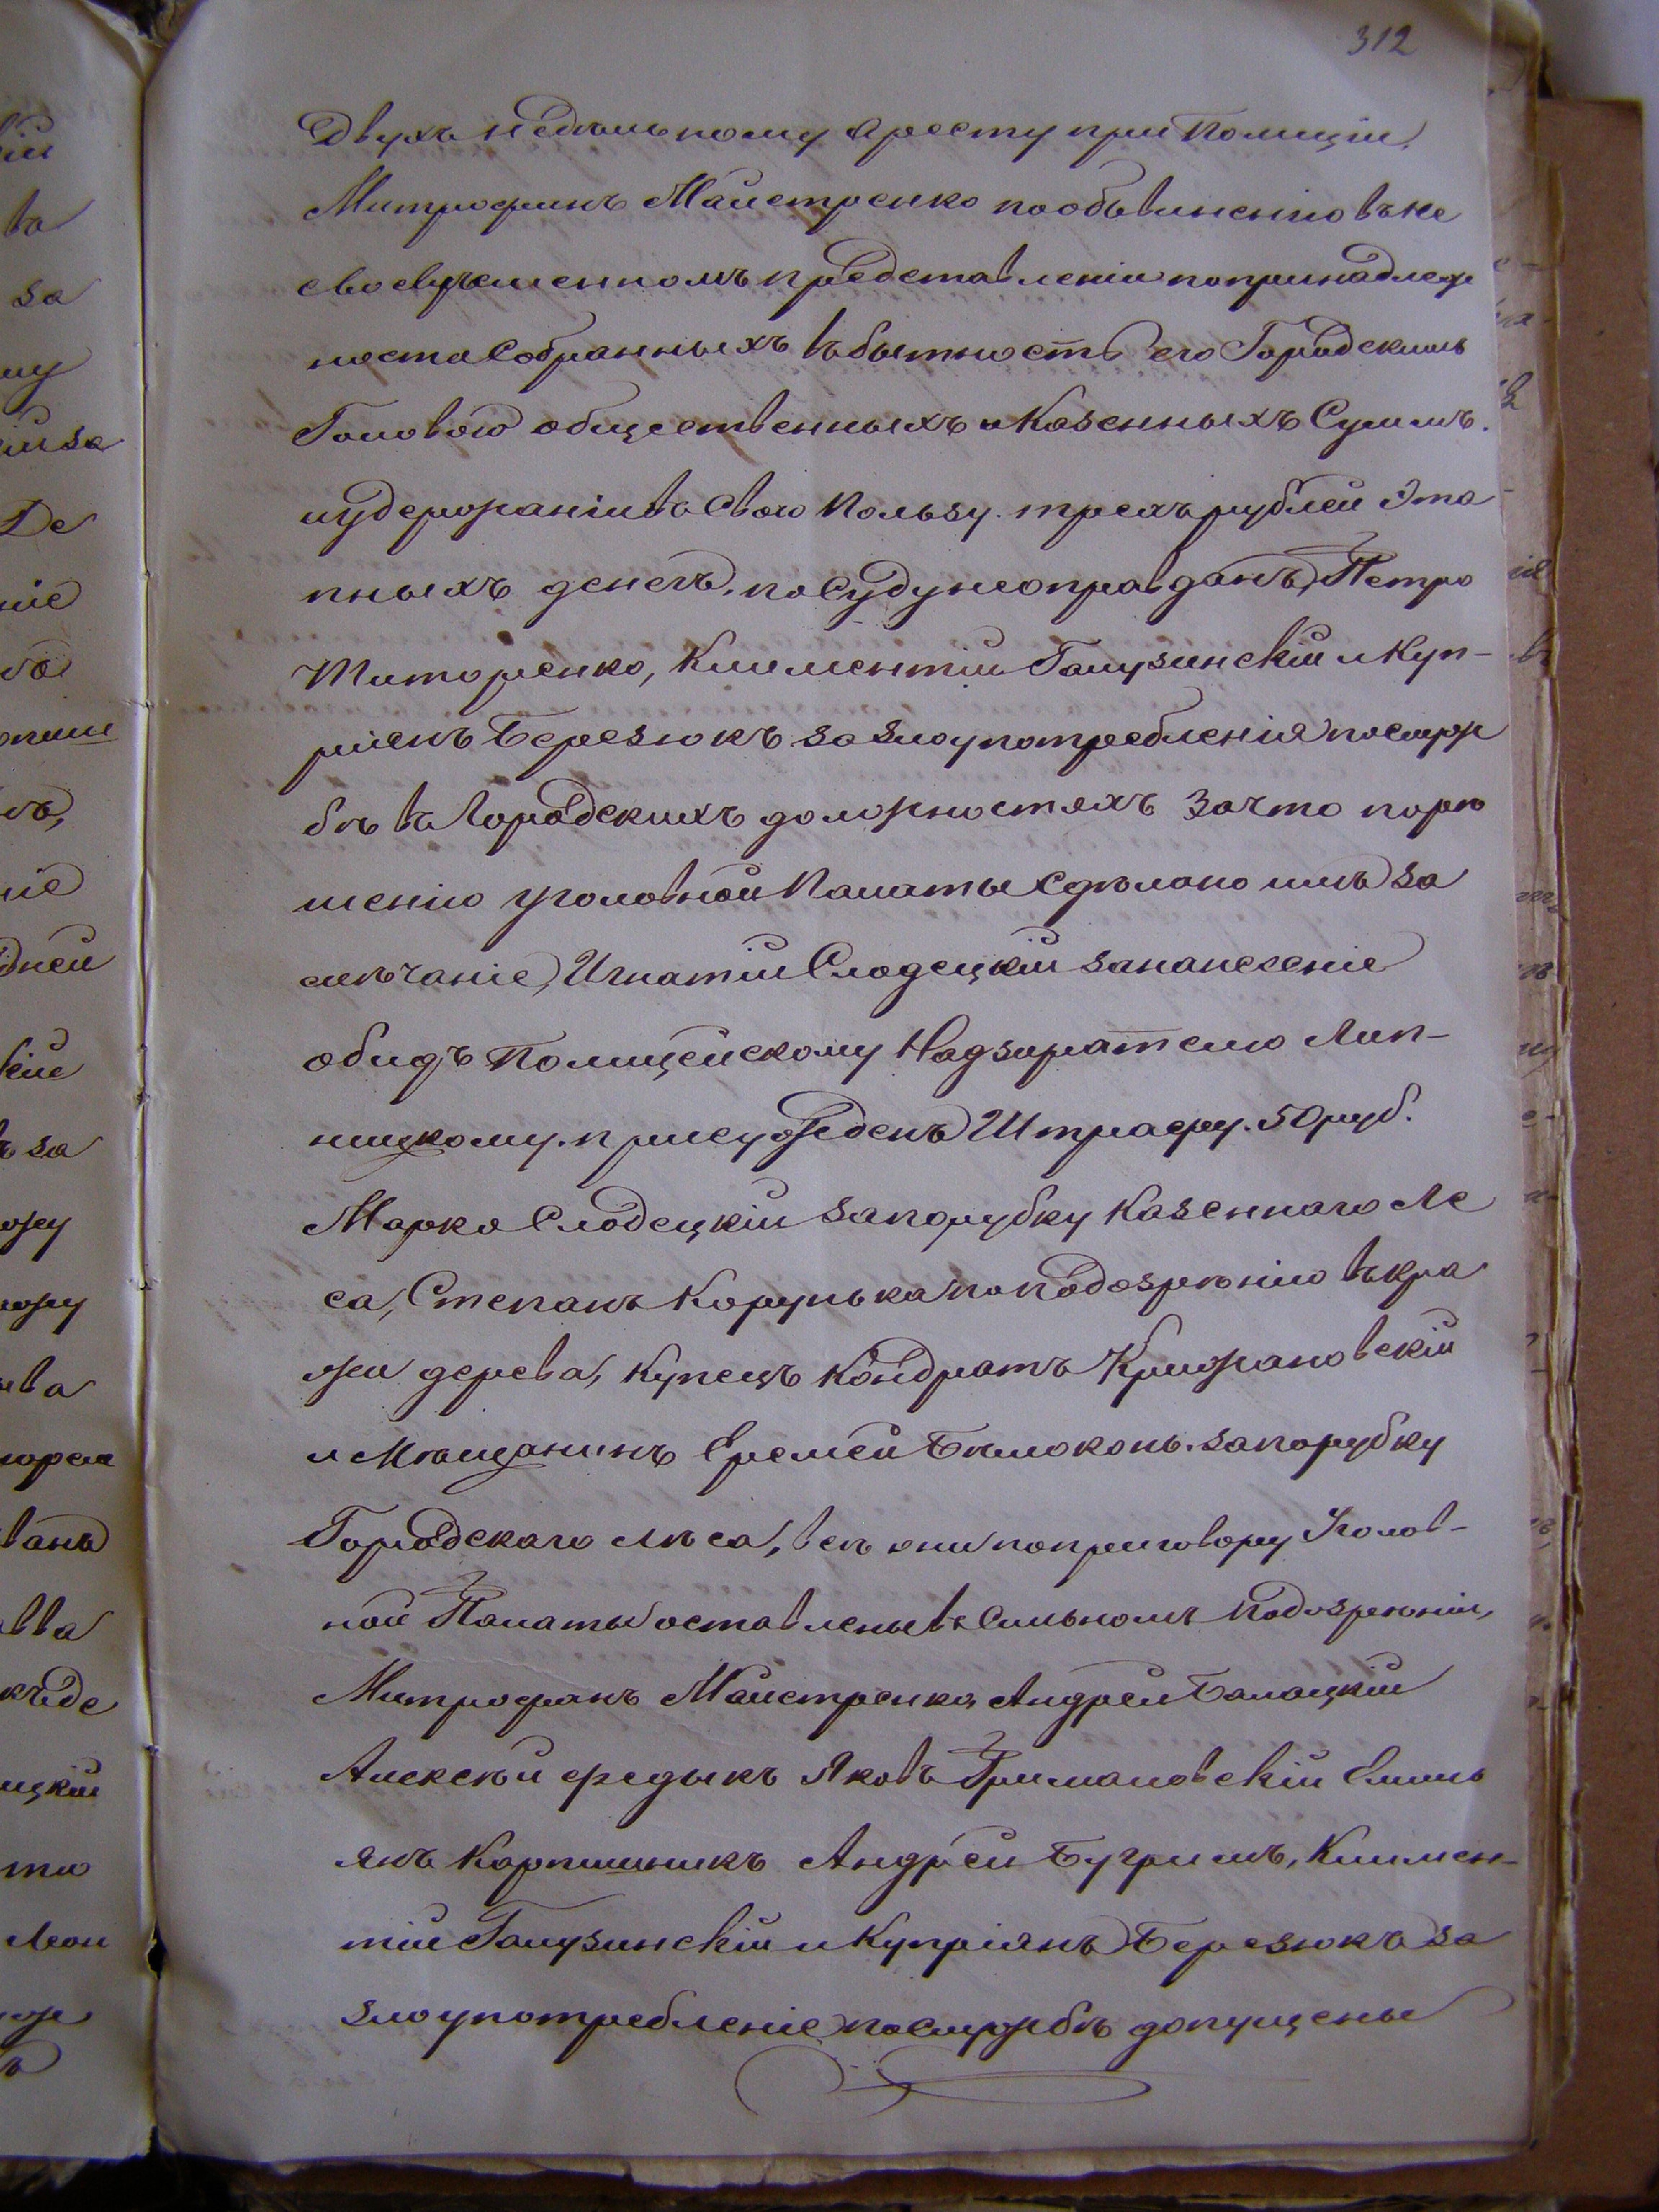 312
Двухъ недельному аресту при Полиціи,
Митрофанъ Майстренко по обвиненію въ не
своевременномъ представленіи по принадлеж
ности собранныхъ въ бытность его Городскимъ
Головою общественныхъ и Казенныхъ Суммъ.
и удержаніи въ свою пользу. трехъ рублей Эта
пныхъ денегъ, по Суду неоправданъ, Петро
Титоренко, Климентій Галузинскій и Куп-
ріянъ Березюкъ за злоупотребленія по служ
бѣ въ Городскихъ должностяхъ Зачто порѣ
шенію уголовной Палаты сдѣлано имъ за
мѣчаніе, Игнатій Слодецкій за нанесеніе
обидъ Полицейскому Надзирателю Лип-
ницкому. присужденъ Штрафу. 50 руб.
Марко Слодецкій за порубку Казеннаго Ле
са, Степанъ Корунька по подозрѣнію въ кра
жи дерева, Купецъ Кондратъ Крижановскій
и Мѣщанинъ Еремей Бѣлоконь. за порубку
Городскаго лѣса, всѣ они по приговору Уголов-
ной Палаты оставлены въ Сильномъ подозрѣніи,
Митрофанъ Майстренко, Андрей Балацкій
Алексѣй Федыкъ Яковъ Грималовскій Емиль
янъ Карпишникъ Андрей Бугримъ, Климен-
тій Галузинскій и Купріянъ Березюкъ за
злоупотребленіе по службѣ допущены